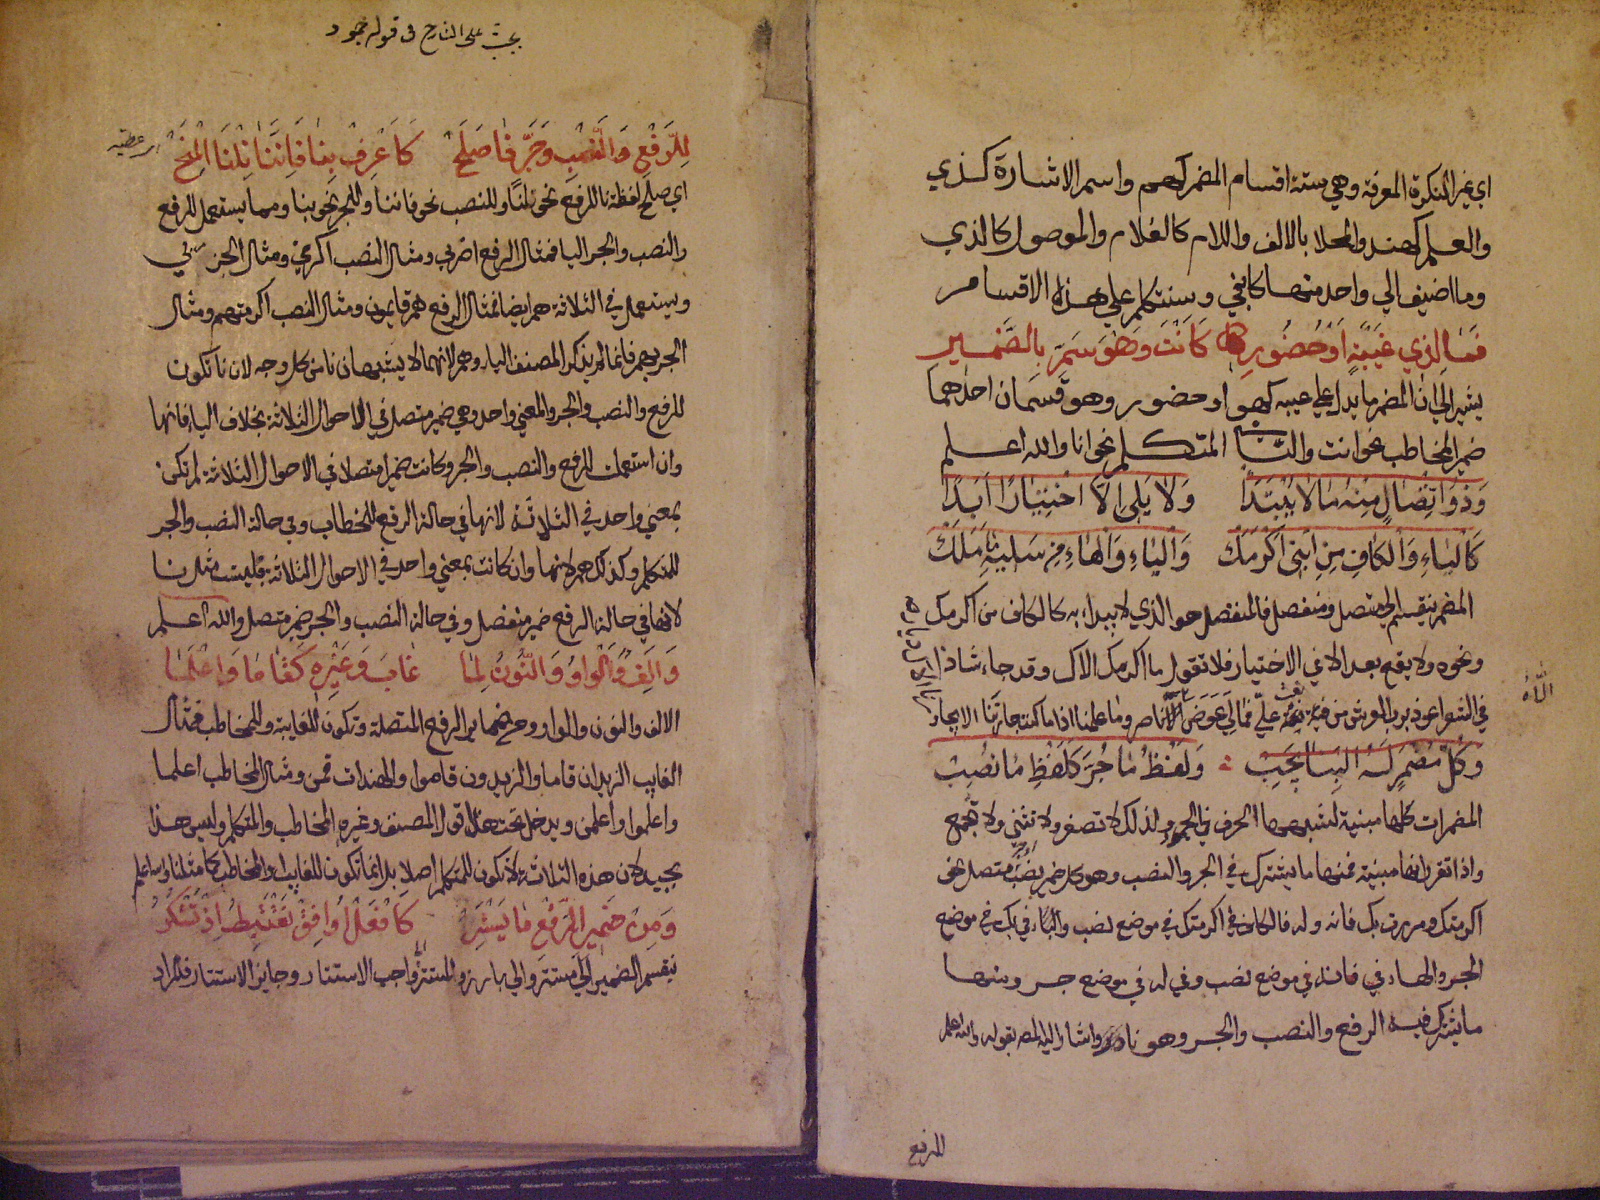 اي غير النكرة المعرفة وهي ستة اقسام المضمر كهم واسم الاشارة كذي
والعلم كهند والمحلا بالالف واللام كالغلام والموصول كالذي
وما اضيف الي واحد منها كابني وسنتكلم علي هذه الاقسام
فَمَا لِذِي غَيْبَةٍ اَوْ حُضُورِ كَاَنْتَ وَهْوَ سَمِّ بِالضَّمِيرِ
يشير الي ان المضمر ما يدل علي غيبه كهو او حضور وهو قسمان احدهما
ضمير المخاطب نحو انت والثاني المتكلم نحو انا والله اعلم
وَذُو اتِّصَالٍ مِنْهُ مَا لَا يُبْتَدَا وَلَا يَلِي اِلَّا اخْتِيَارًا اَبَدًا
كَالْيَاءِ وَالْكَافِ مِنِ ابْنِي اَكْرَمَكْ وَالْيَاءِ وَالْهَاءِ مِنْ سَلِيهِ مَا مَلَكْ
المضمر ينقسم الي متصل ومنفصل فالمتصل هو الذي لا يبدا به كالكاف من اكرمك
ونحوه ولا يقع بعد الا في الاختيار فلا تقول ما اكرمك الاك وقد جاء شاذا
في الشعر اعوذ برب العرش من فئة بغت علي فمالي عوض الاه ناصر وما علينا اذا ما كنت جارتنا الا يجاورنا
وَكُلُّ مُضْمَرٍ لَهُ الْبِنَا يَجِبْ وَلَفْظُ مَا جُرَّ كَلَفْظِ مَا نُصِبْ
المضمرات كلها مبنية لشبهها الحرف في الجمود ولذلك لا تصغر ولا تثني ولا تجمع
واذا تقرر انها مبنية فمنها ما يشترك في الجر والنصب وهو كل ضمير نصب متصل نحو
اكرمتك ومررت بك فانه وله فالكاف في اكرمتك في موضع نصب والكاف في بك في موضع
الجر والهاء في فانه في موضع نصب وفي له في موضع جر ومنها
ما يشترك فيه الرفع والنصب والجر وهو نا واشار اليه المص بقوله والله اعلم
للرفع
الاه
بحث علي الشارح في قوله جمود
لِلرَّفْعِ وَالنَّصْبِ وَجَرٍّ نَا صَلَحْ كَاعْرِفْ بِنَا فَاِنَّنَا نِلْنَا الْمِنَحْ
اي صلح لفظة نا للرفع نحو نلنا وللنصب نحو فاننا وللجر نحو بنا ومما يستعمل للرفع
والنصب والجر اليا فمثال الرفع اضربي ومثال النصب اكرمني ومثال الجر مر بي
ويستعمل في الثلاثة هم ايضا فمثال الرفع هم قايمون ومثال النصب اكرمتهم ومثال
الجر بهم وانما لم يذكر المصنف الياء وهم لانهما لا يشبهان نا من كل وجه لان نا تكون
للرفع والنصب والجر والمعني واحد وهي ضمير متصل في الاحوال الثلاثة بخلاف الياء فانها
وان استعملت للرفع والنصب والجر وكانت ضميرا متصلا في الاحوال الثلاثة لم تكن
بمعني واحد في الثلاثة لانها في حالة الرفع للخطاب وفي حالة النصب والجر
للمتكلم وكذلك هم لانها وان كانت بمعني واحد في الاحوال الثلاثة فليست مثل نا
لانها في حالة الرفع ضمير منفصل وفي حالة النصب والجر ضمير متصل والله اعلم
وَاَلِفٌ وَالْوَاوُ وَالنُّونُ لِمَا غَابَ وَغَيْرِهِ كَقَامَا وَاعْلَمَا
الالف والنون والواو من ضماير الرفع المتصلة وتكون للغايبة وللمخاطب فمثال
الغايب الزيدان قاما والزيدون قاموا والهندات قمن ومثال المخاطب اعلما
واعلموا واعلمن ويدخل تحت قول المصنف وغيره المخاطب والمتكلم وليس هذا
بجيد لان هذه الثلاثة لا تكون للمتكلم اصلا بل انما تكون للغايب والمخاطب كما مثلنا والله اعلم
وَمِنْ ضَمِيرِ الرَّفْعِ مَا يَسْتَتِرُ كَافْعَلْ اُوَافِقْ نَغْتَبِطْ اِذْ تَشْكُرُ
ينقسم الضمير الي مستتر والي بارز والمستتر الي واجب الاستتار وجايز الاستتار فالمراد